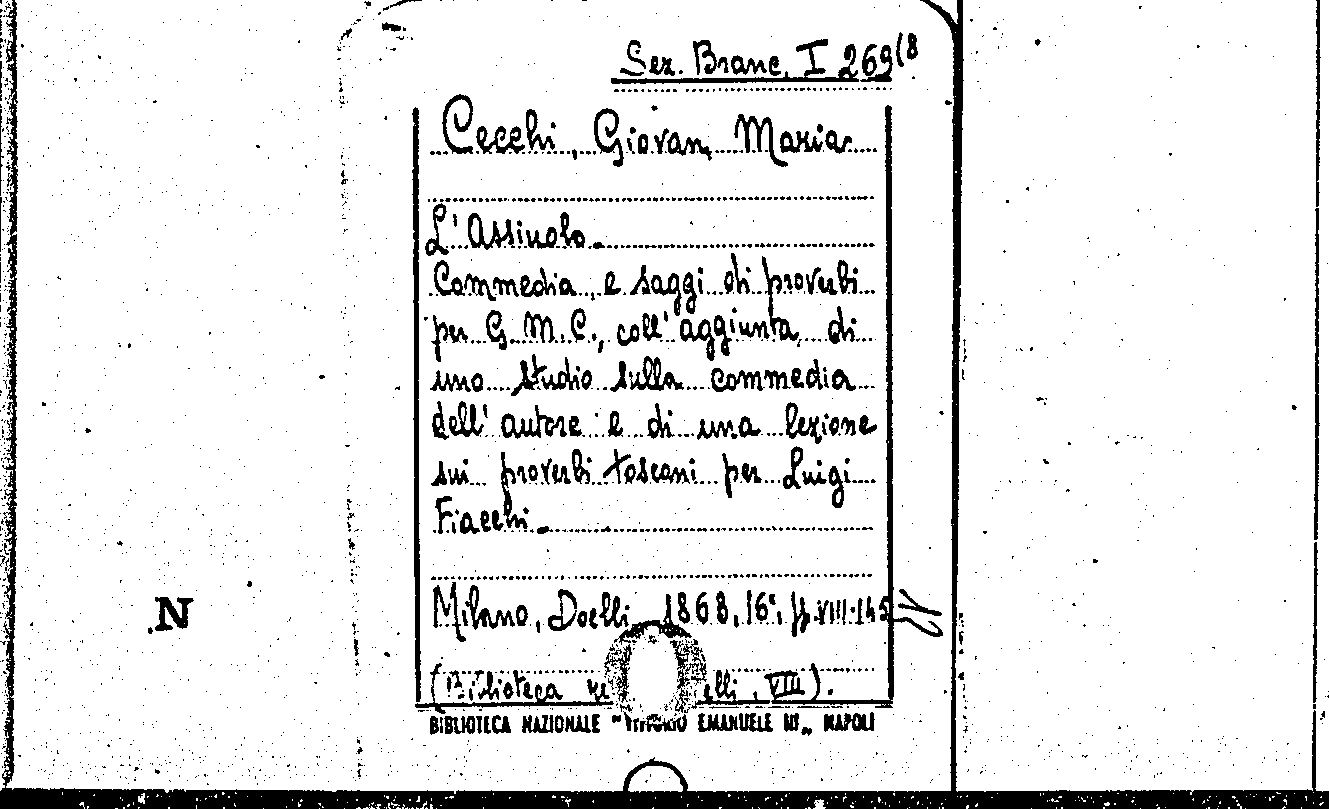 Sez. Branc. I 269(8
Cecchi, Giovan Maria
L'Assiuolo.
Commedia e saggi di proverbi
per G. M. C., coll'aggiunta di
uno studio sulla commedia
dell'autore e di una lezione
sui proverbi toscani per Luigi
Fiacchi.
Milano, Doelli, 1868, 16°, pp. VIII-145
(Biblioteca elli, VIII).
BIBLIOTECA NAZIONALE "VITTORIO EMANUELE III„ NAPOLI
N